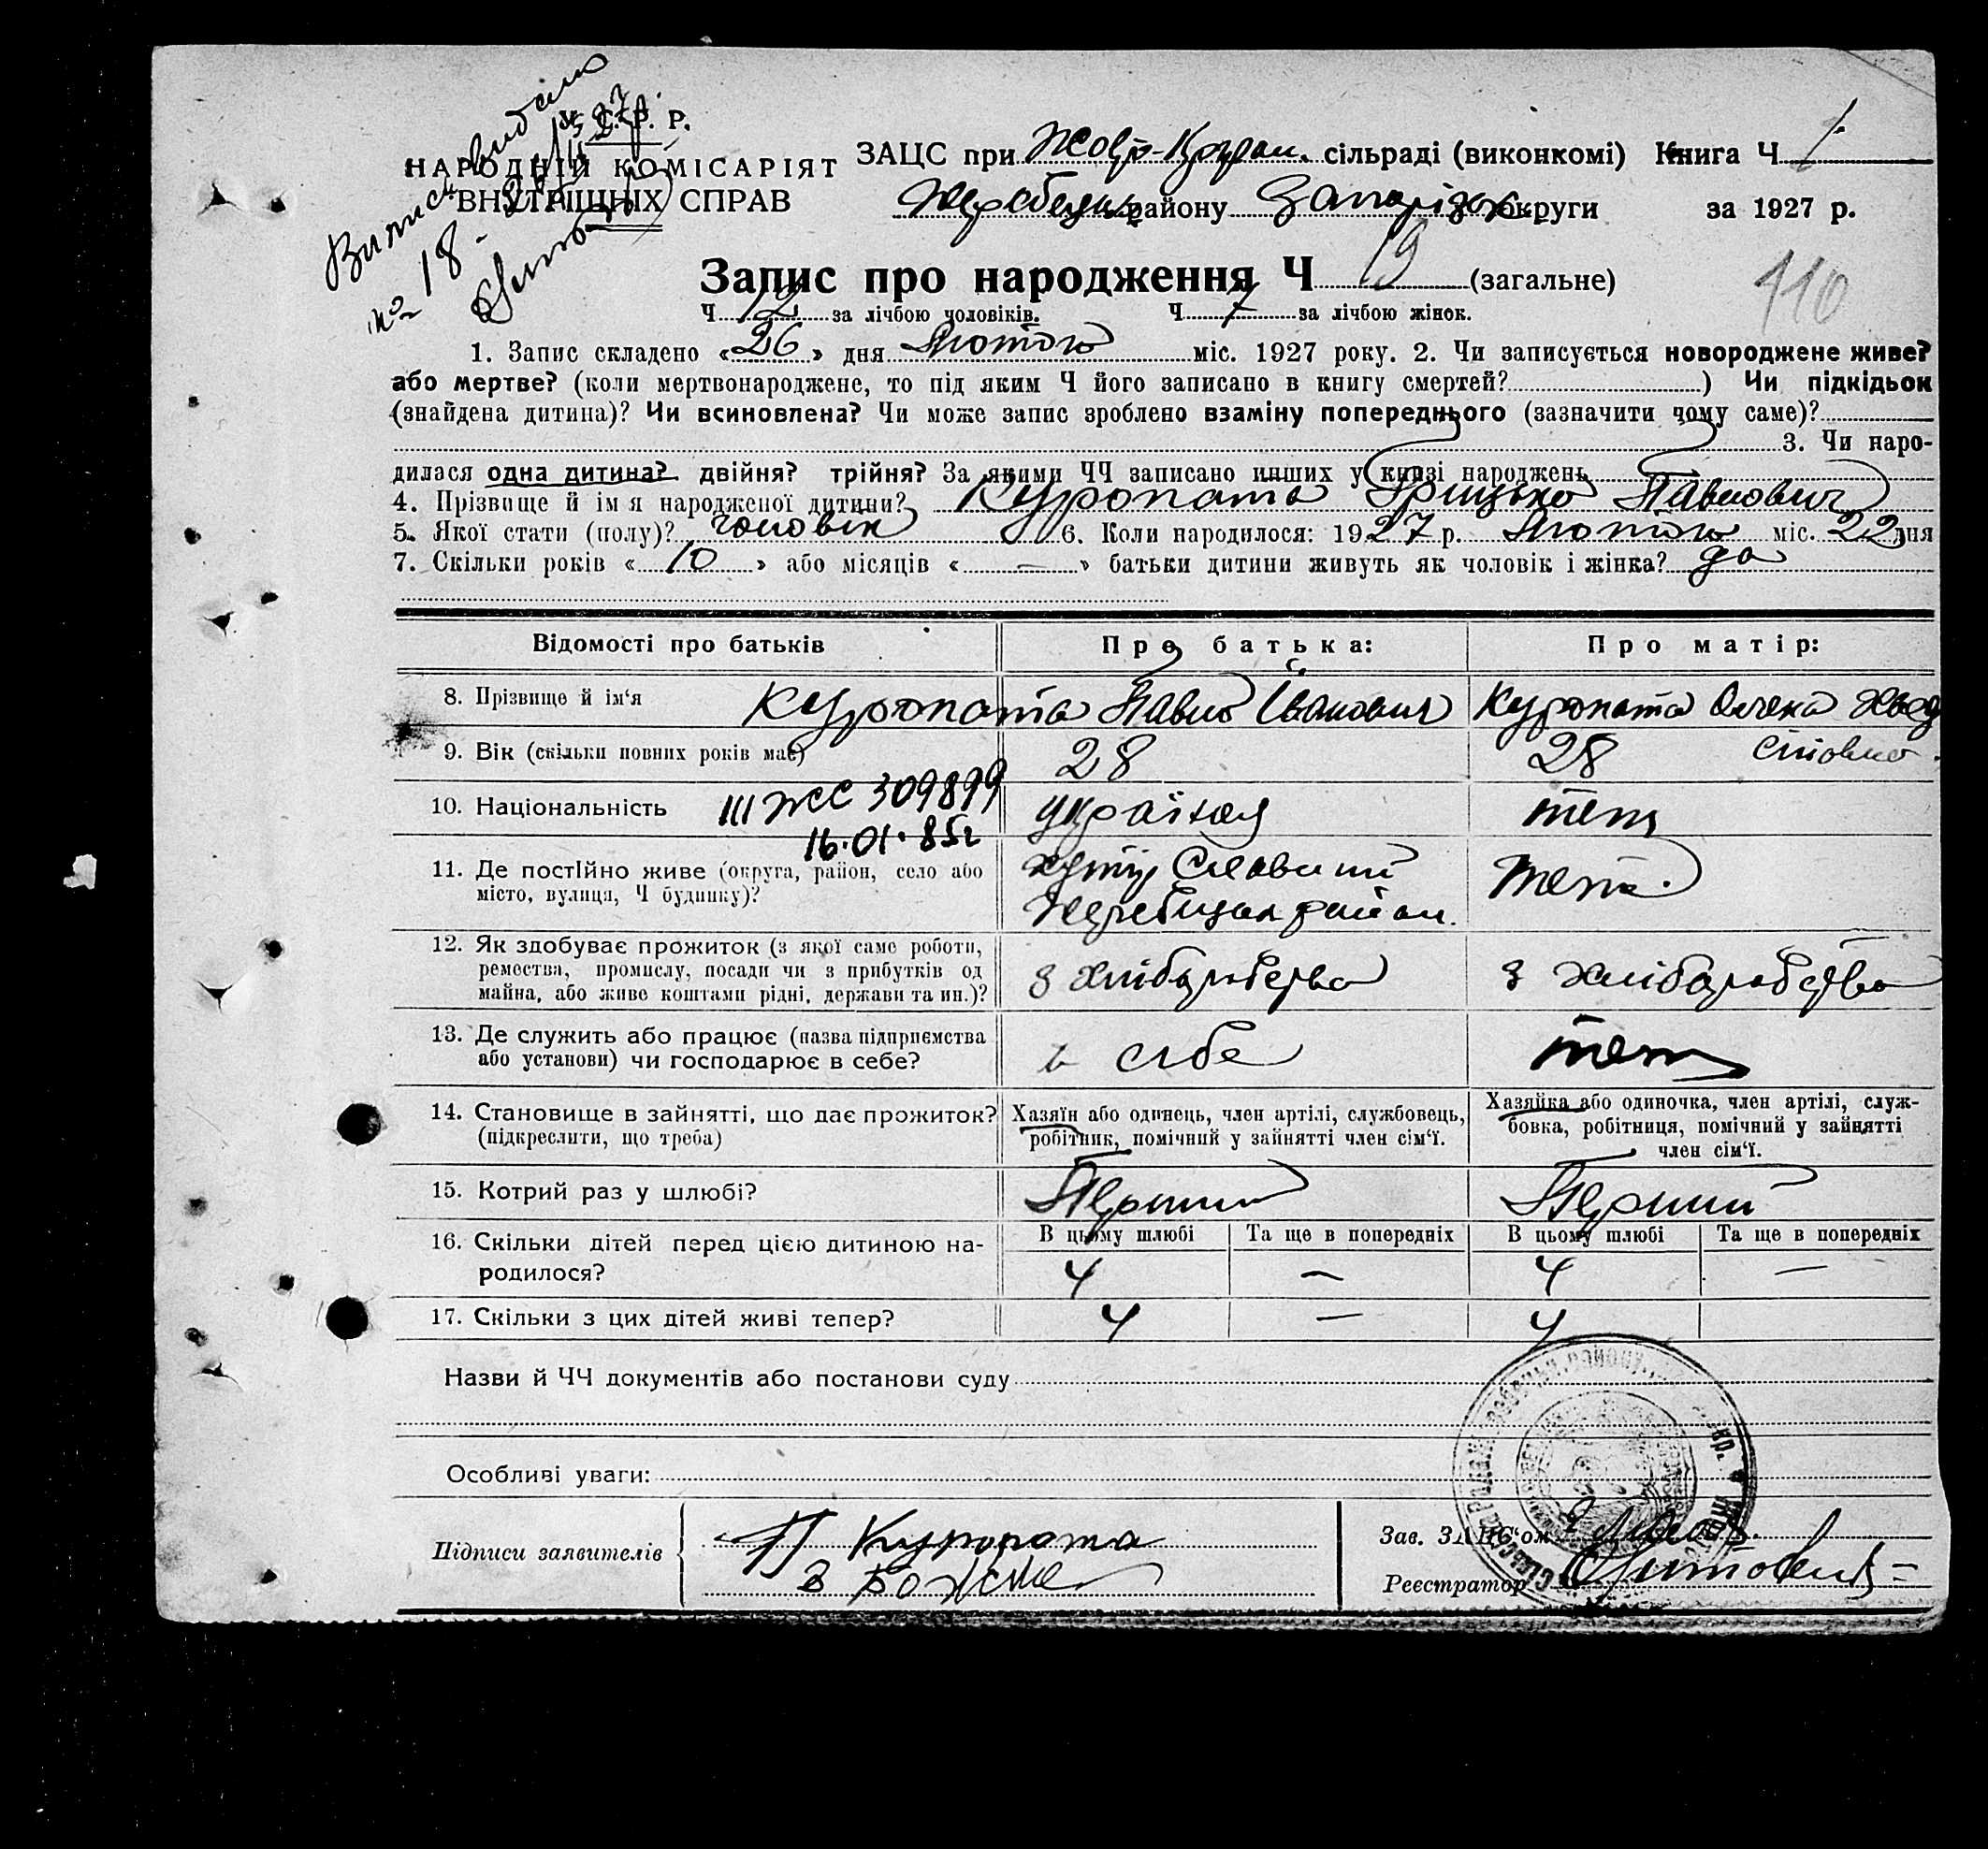 Випись видана
№ 18 - 26/II 1927 р.
У. С. Р. Р.
НАРОДНІЙ КОМІСАРІЯТ
ВНУТРІШНІХ СПРАВ
ЗАЦС при сільраді (виконкомі) Книга Ч 1
Жеребецьк району Запорізьк округи за 1927 р.
Запис про народження Ч 19 (загальне)
110
Ч 12 за лічбою чоловіків. Ч 7 за лічбою жінок.
1. Запис складено «26» дня Лютого міс. 1927 року. 2. Чи записується новороджене живе?
або мертве? (коли мертвонароджене, то під яким Ч його записано в книгу смертей? ) Чи підкідьок
(знайдена дитина)? Чи всиновлена? Чи може запис зроблено взаміну попереднього (зазначити чому саме)?
3. Чи наро-
дилася одна дитина? двійня? трійня? За якими ЧЧ записано инших у книзі народжень
4. Прізвище й ім я народженої дитини? Куропата Грицько Павлович
5. Якої стати (полу)? чоловік 6. Коли народилося: 1927 р. Лютого міс. 22 дня
7. Скільки років «10» або місяців «—» батьки дитини живуть як чоловік і жінка? да
Відомості про батьків Про батька: Про матір:
8. Прізвище й ім‘я Куропата Павло Іванович Куропата Олена
9. Вік (скільки повних років має) 28 28
10. Національність III ЖС 309899 україн теж
16.01.85г
11. Де постійно живе (округа, район, село або
місто, вулиця, Ч будинку)? хутір
Жеребецьк район. теж.
12. Як здобуває прожиток (з якої саме роботи,
ремества, промислу, посади чи з прибутків од
майна, або живе коштами рідні, держави та ин.)? з хліборобства з хліборобства
13. Де служить або працює (назва підприємства
або установи) чи господарює в себе? в себе теж
14. Становище в зайнятті, що дає прожиток?
(підкреслити, що треба)
Хазяїн або одинець, член артілі, службовець,
робітник, помічний у зайнятті член сім‘ї.
Хазяйка або одиночка, член артілі, служ-
бовка, робітниця, помічний у зайнятті
член сім‘ї.
15. Котрий раз у шлюбі? Перший Перший
16. Скільки дітей перед цією дитиною на-
родилося?
В цьому шлюбі Та ще в попередніх В цьому шлюбі Та ще в попередніх
4 — 4 —
17. Скільки з цих дітей живі тепер? 4 — 4
Назви й ЧЧ документів або постанови суду
Особливі уваги:
Підписи заявителів П Куропата
Зав. ЗАЦС‘ом
Реєстратор